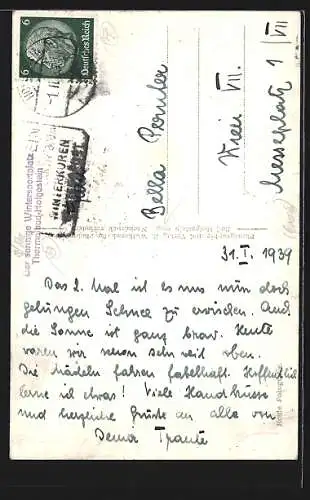 6 Deutsches Reich 6
Der sonnige Wintersportplatz
Thermalbad Hofgastein
WINTERKUREN
Bella Pernter
Wien VII.
Messeplatz 1 / VII
31. I. 1939
Das 2. Mal ist es uns nun doch
gelungen Schnee zu erwischen. Auch
die Sonne ist ganz brav. Heute
waren wir schon sehr weit oben.
Die Mädeln fahren fabelhaft. Hoffentlich
lerne ich etwas! Viele Handküsse
und herzliche Grüße an alle von
Deiner Traute